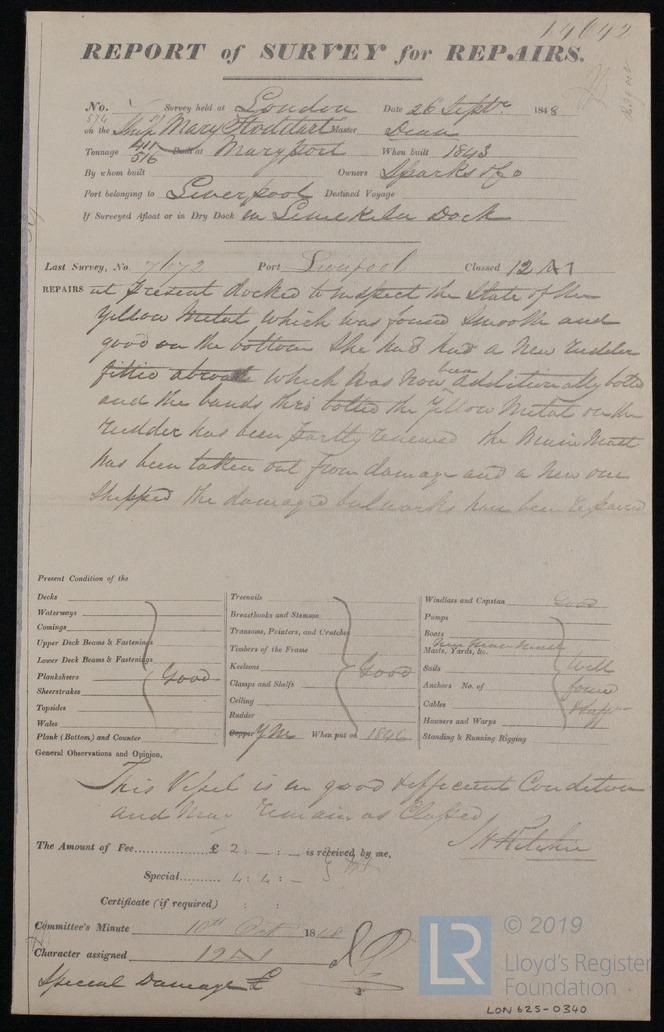 14642
REPORT of SURVEY for REPAIRS.
No. Survey held at London Date 26 Septr 1848
574 on the Ship Mary Stoddart Master
Tonnage 411 516 Built at Maryport When built 1843
By whom built Owners Sparks & Co
Port belonging to Liverpool Destined Voyage
If Surveyed Afloat or in Dry Dock in Limekiln Dock
Last Survey, No. 7172 Port Liverpool Classed 12 A1
REPAIRS at present docked to inspect the State of the
Yellow Metal which was found smooth and
good on the bottom She has had a new rudder
fitted abroad which has now been additionally bolted
and the bands thro bolted the Yellow Metal on the
rudder has been partly renewed the Main Mast
has been taken out from damage and a new one
shipped the damaged bulwarks have been repaired
Present Condition of the
Decks
Waterways
Comings
Upper Deck Beams & Fastenings
Lower Deck Beams & Fastenings
Planksheers Good
Sheerstrakes
Topsides
Wales
Plank (Bottom) and Counter
Treenails
Breasthooks and Stemson
Transoms, Pointers, and Crutches
Timbers of the Frame
Keelsons Good
Clamps and Shelfs
Ceiling
Rudder
Copper YM When put on 1846
Windlass and Capstan Good
Pumps
Boats
New Main Mast
Masts, Yards, &c.
Sails Well
Anchors No. of found
Cables
Hawsers and Warps
Standing & Running Rigging
General Observations and Opinion,
This Vessel is in good & efficient Condition
and may remain as Classed
The Amount of Fee £ 2 : - : - is received by me,
Special 4 : 4 : -
Certificate (if required) : :
Committee's Minute 10th Oct 1848
Character assigned 12 A1
Special Damage £
LR © 2019
Lloyd's Register
Foundation
LON 625-0340